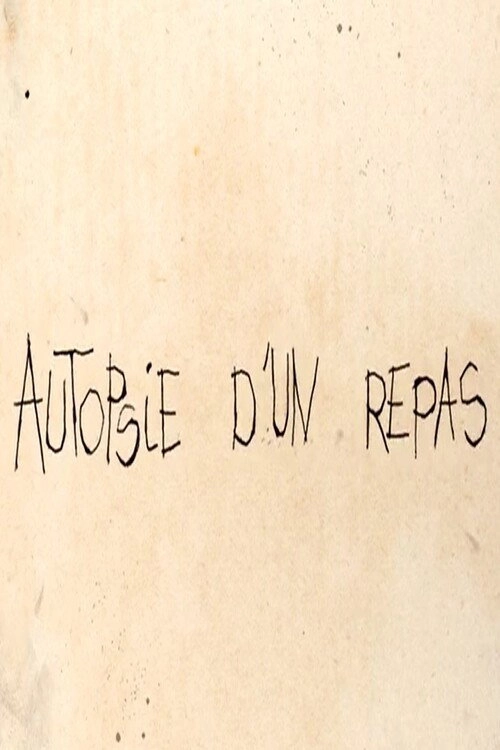 AUTOPSiE D'UN REPAS